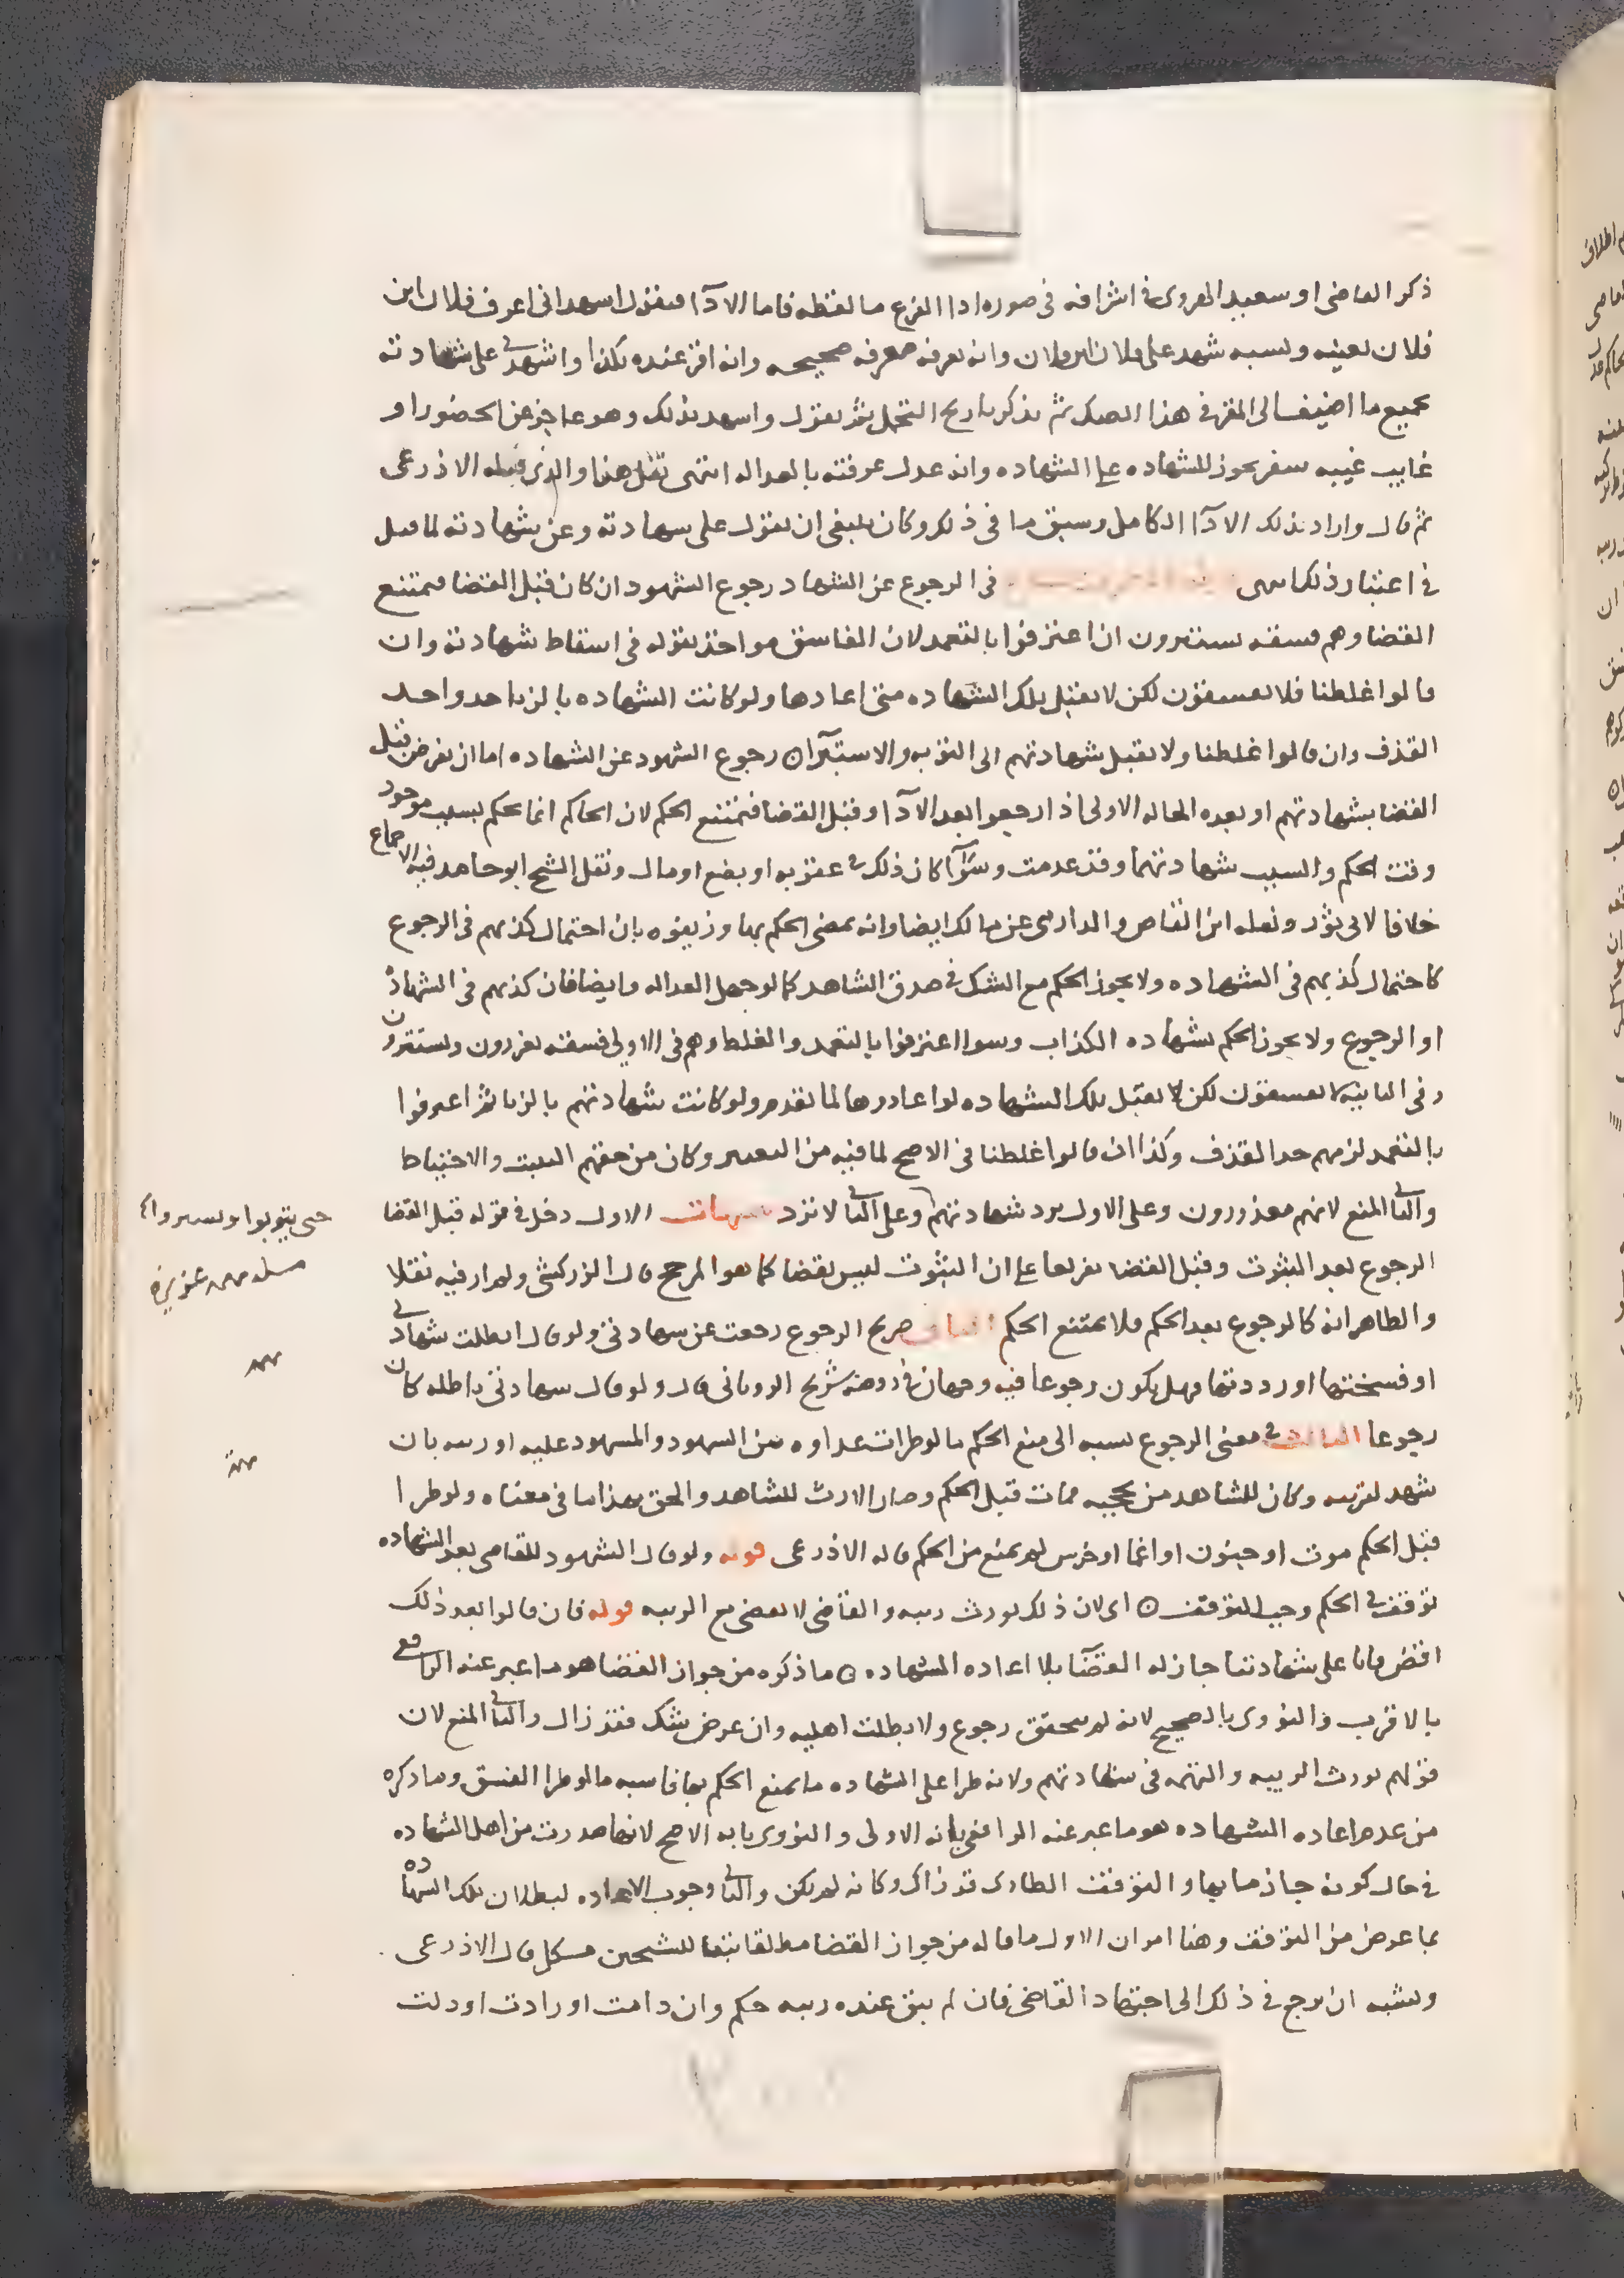 ذكر القاضي ابو سعيد الهروي في اشرافه في صوره ادا الفرع ما لفظه فاما الادآ فيقول اشهد اني اعرف فلان ابن
فلان بعينه ونسبه شهد على فلان ابن فلان وانه يعرفه معرفه صحيحه وانه اقر عنده بكذا واشهدني على شهادته
بجميع ما اضيف الى المقر في هذا الصك ثم يذكر تاريخ التحمل ثم يقول واشهد بذلك وهو عاجز عن الحضور او
غايب غيبه سفر يجوز للشهاده على الشهاده وانه عدل عرفته بالعداله انتهى نقل هذا والذي قبله الاذرعي
ثم قال واراد بذلك الادآ الكامل وسبق ما في ذلك وكان ينبغي ان يقول على شهادته وعن شهادته لما قيل
في اعتبار ذلك انتهى في الرجوع عن الشهاد رجوع الشهود ان كان قبل القضا فيمتنع
القضا وهم فسقه يستبرون ان اعترفوا بالتعمد لان الفاسق مواخذ بقوله في اسقاط شهادته وان
قالوا غلطنا فلا يفسقون لكن لا يقبل تلك الشهاده متى اعادها ولو كانت الشهاده بالزنا حد واحد
القذف وان قالوا غلطنا ولا يقبل شهادتهم الى التوبه والاستبرا ن رجوع الشهود عن الشهاده اما ان يفرض قبل
القضا بشهادتهم او بعده الحاله الاولى اذا رجعوا بعد الادآ وقبل القضا فيمتنع الحكم لان الحاكم انما يحكم بسبب موجود
وقت الحكم والسبب شهادتهما وقد عدمت وسوآ كان ذلك في عقوبه او بضع او مال ونقل الشيخ ابو حامد فيه الاجماع
خلافا لابي ثور ونقله ابن القاص والدارمي عن مالك ايضا وانه يمضي الحكم بها وزيفوه بان احتمال كذبهم في الرجوع
كاحتمال كذبهم في الشهاده ولا يجوز الحكم مع الشك في صدق الشاهد كما لو جهل العداله وايضا فان كذبهم في الشهاده
او الرجوع ولا يجوز الحكم بشهاده الكذاب وسوا اعترفوا بالتعمد والغلط وهم في الاولى فسقه يعزرون ويستبرون
وفي الثانيه لا يفسقون لكن لا يقبل تلك الشهاده لو اعادوها لما تقدم ولو كانت شهادتهم بالزنا ثم اعترفوا
بالتعمد لزمهم حد القذف وكذا ان قالوا غلطنا في الاصح لما فيه من التعيير وكان من حقهم التثبت والاحتياط
والثاني المنع لانهم معذورون وعلى الاول يرد شهادتهم وعلى الثاني لا ترد تنبيهات الاول دخل في قوله قبل القضا
الرجوع بعد الثبوت وقبل القضا تفريعا على ان الثبوت ليس بقضا كما هو المرجح قال الزركشي ولم ار فيه نقلا
والظاهر انه كالرجوع بعد الحكم فلا يمتنع الحكم الثاني صريح الرجوع رجعت عن شهادتي ولو قال ابطلت شهادتي
او فسختها او رددتها فهل يكون رجوعا فيه وجهان في روضه شريح الروياني قال ولو قال شهادتي باطله كان
رجوعا الثالث في معنى الرجوع نسبه الى منع الحكم ما لو طرات عداوه بين الشهود والمشهود عليه او ريبه بان
شهد لقريبه وكان للشاهد من يحجبه فمات قبل الحكم وصار الارث للشاهد والحق بهذا ما في معناه ولو طرا
قبل الحكم موت او جنون او اغما او خرس لم يمنع من الحكم قاله الاذرعي قوله ولو قال الشهود للقاضي بعد الشهاده
توقف في الحكم وجب التوقف ن اي لان ذلك يورث ريبه والقاضي لا يقضي مع الريبه قوله فان قالوا بعد ذلك
اقض فانا على شهادتنا جاز له القضآ بلا اعاده الشهاده ن ما ذكره من جواز القضا هو ما عبر عنه الرافعي
بالاقرب والنووي بالصحيح لانه لم يتحقق رجوع ولا بطلت اهليه وان عرض شك فقد زال والثاني المنع لان
قولهم يورث الريبه والتهمه في شهادتهم ولانه طرا على الشهاده ما يمنع الحكم بها فاشبه ما لو طرا الفسق وما ذكره
من عدم اعاده الشهاده هو ما عبر عنه الرافعي بانه الاولى والنووي بانه الاصح لانها صدرت من اهل الشهاده
في حال كونه جازما بها والتوقف الطاري قد زال وكانه لم يكن والثاني وجوب الاعاده لبطلان تلك الشهاده
بما عرض من التوقف وهنا امران الاول ما قاله من جواز القضا مطلقا تبعا للشيخين مشكل قال الاذرعي
ويشبه ان يرجع في ذلك الى اجتهاد القاضي فان لم يبق عنده ريبه حكم وان دامت او زادت او دلت
حتى يتوبوا ويستبروا
مسله مهمه عزيزه
مهمه